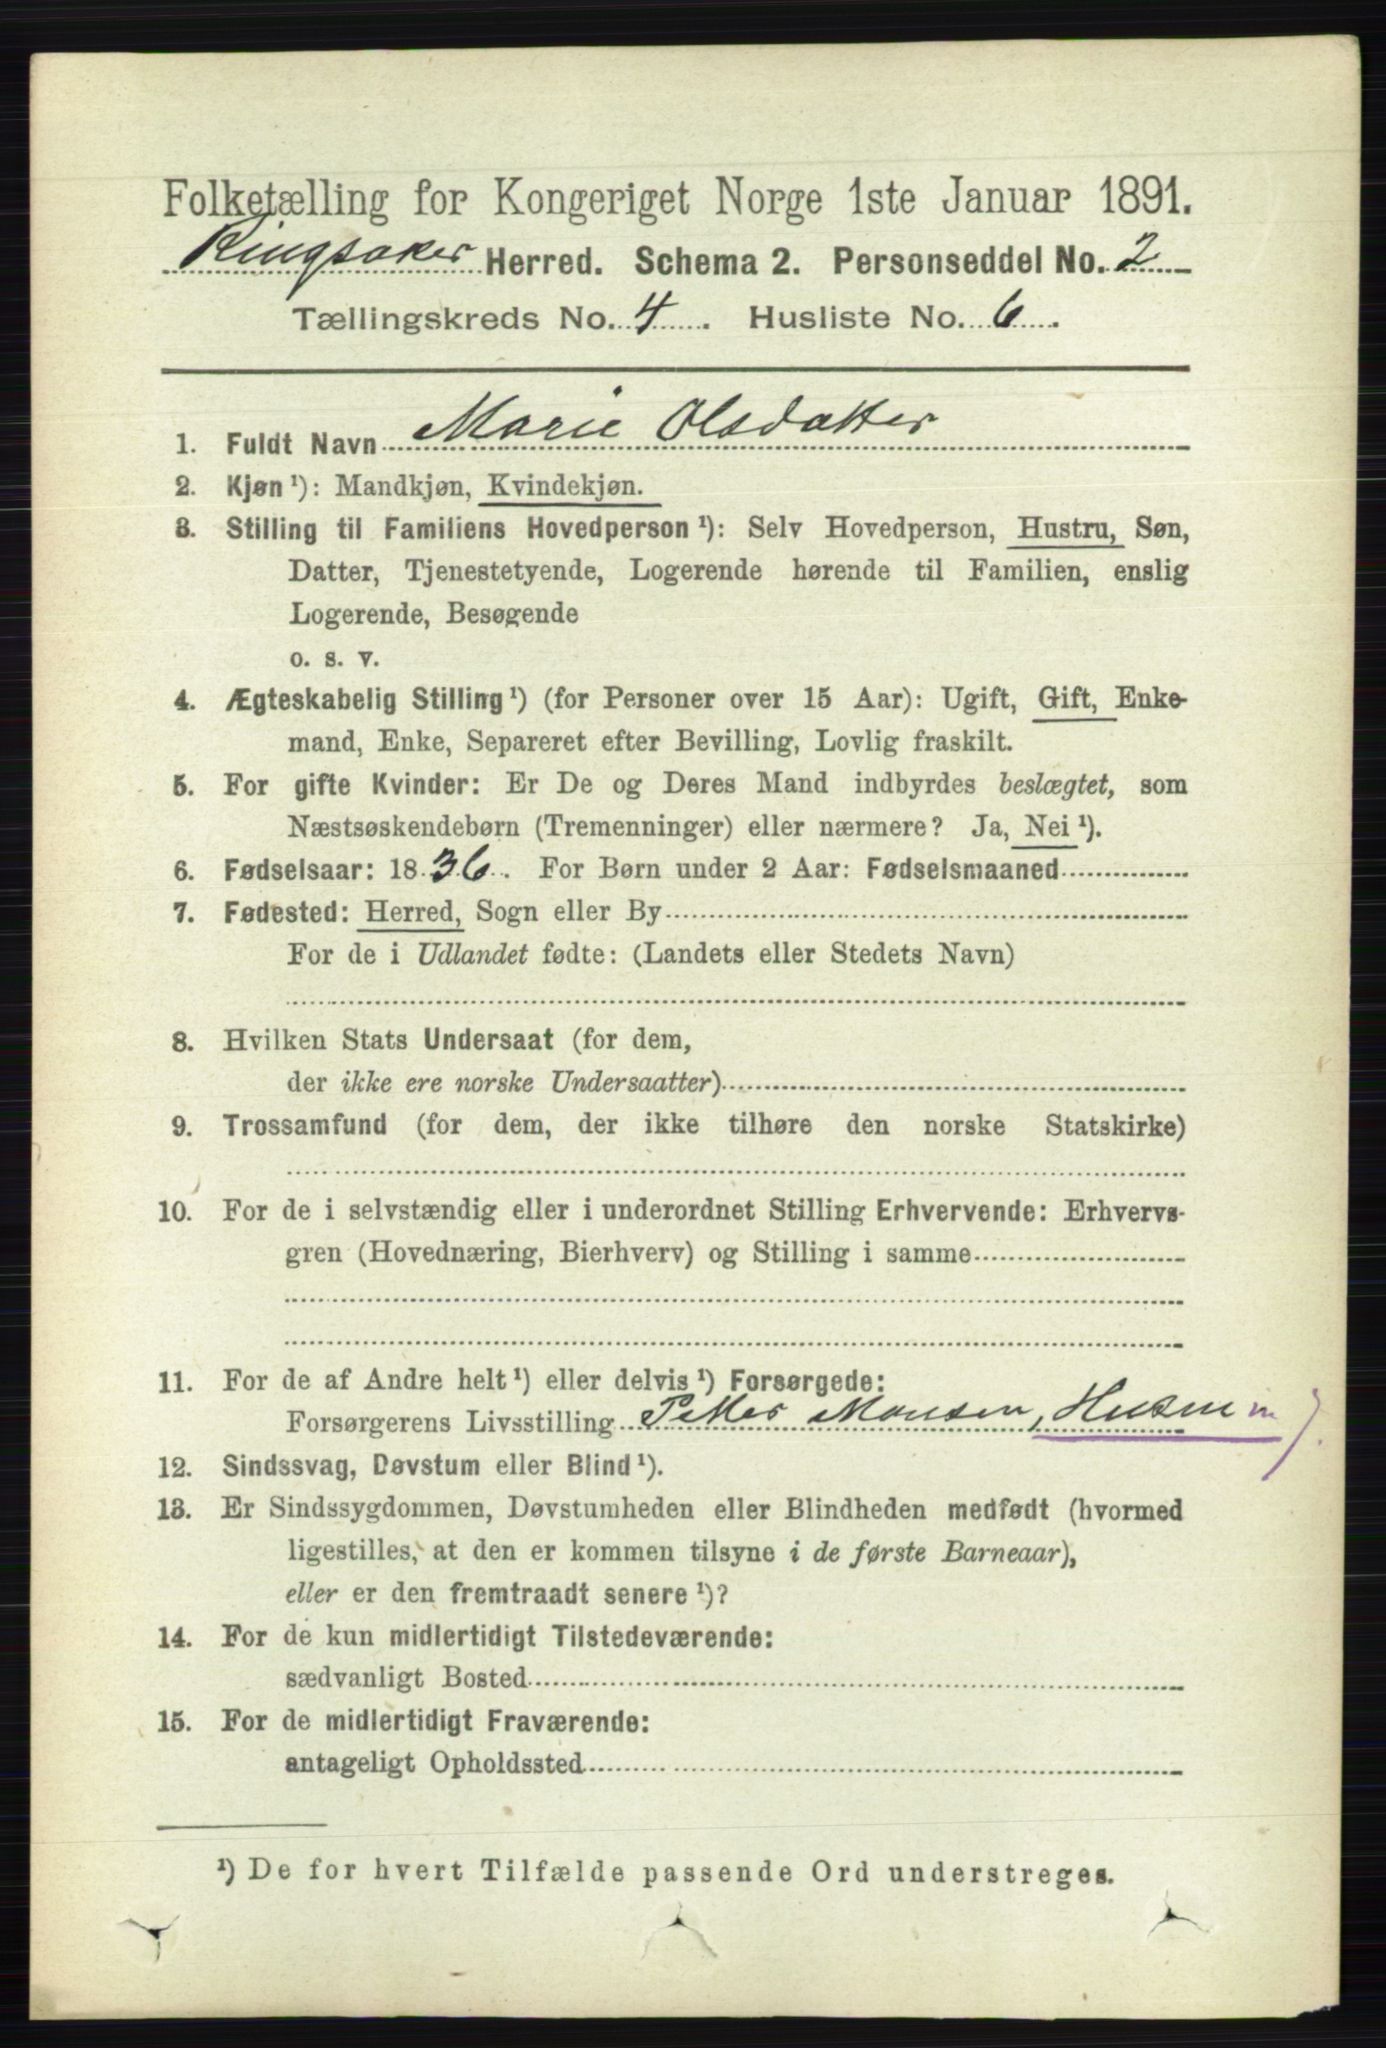 Folketælling for Kongeriget Norge 1ste Januar 1891.
Ringsaker Herred. Schema 2. Personseddel No. 2
Tællingskreds No. 4. Husliste No. 6.
1. Fuldt Navn Marie Olsdatter
2. Kjøn ¹): Mandkjøn, Kvindekjøn.
3. Stilling til Familiens Hovedperson ¹): Selv Hovedperson, Hustru, Søn,
Datter, Tjenestetyende, Logerende hørende til Familien, enslig
Logerende, Besøgende
o. s. v.
4. Ægteskabelig Stilling ¹) (for Personer over 15 Aar): Ugift, Gift, Enke-
mand, Enke, Separeret efter Bevilling, Lovlig fraskilt.
5. For gifte Kvinder: Er De og Deres Mand indbyrdes beslægtet, som
Næstsøskendebørn (Tremenninger) eller nærmere? Ja, Nei ¹).
6. Fødselsaar: 1836. For Børn under 2 Aar: Fødselsmaaned
7. Fødested: Herred, Sogn eller By
For de i Udlandet fødte: (Landets eller Stedets Navn)
8. Hvilken Stats Undersaat (for dem,
der ikke ere norske Undersaatter)
9. Trossamfund (for dem, der ikke tilhøre den norske Statskirke)
10. For de i selvstændig eller i underordnet Stilling Erhvervende: Erhvervs-
gren (Hovednæring, Bierhverv) og Stilling i samme
11. For de af Andre helt ¹) eller delvis ¹) Forsørgede:
Forsørgerens Livsstilling Petter Monsen, Husm
12. Sindssvag, Døvstum eller Blind ¹).
13. Er Sindssygdommen, Døvstumheden eller Blindheden medfødt (hvormed
ligestilles, at den er kommen tilsyne i de første Barneaar),
eller er den fremtraadt senere ¹)?
14. For de kun midlertidigt Tilstedeværende:
sædvanligt Bosted
15. For de midlertidigt Fraværende:
antageligt Opholdssted
¹) De for hvert Tilfælde passende Ord understreges.